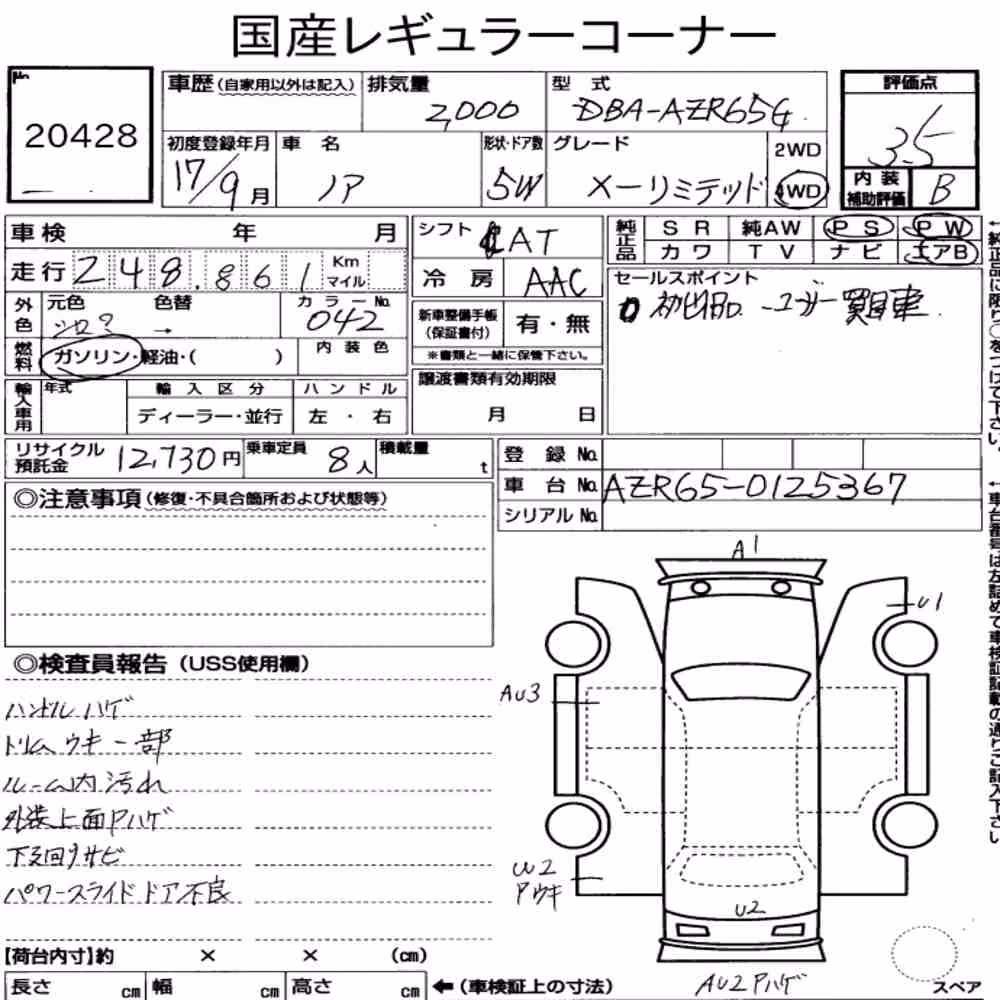 国産レギュラーコーナー
No.
20428
車歴(自家用以外は記入) 排気量 型 式
2,000 DBA-AZR65G
評価点
3.5
初度登録年月 車 名 形状・ドア数 グレード 2WD
17/9月 ノア 5W X-リミテッド 4WD
内装補助評価 B
車検 年 月
走行 248.861 Km マイル
シフト AT
冷房 AAC
純正品 SR 純AW PS PW
カワ TV ナビ エアB
←純正品に限り○をつけて下さい。
外色 元色 色替 カラーNo.
シロ? → 042
燃料 ガソリン・軽油・( ) 内装色
新車整備手帳(保証書付) 有・無
※書類と一緒に保管下さい。
セールスポイント
初出品 ユーザー買取車
輸入車用 年式 輸入区分 ハンドル
ディーラー・並行 左・右
譲渡書類有効期限
月 日
リサイクル預託金 12,730円 乗車定員 8人 積載量 t
登録No.
車台No. AZR65-0125367
シリアルNo.
←車台番号は左詰めで車検証記載の通りご記入下さい
◎注意事項(修復・不具合箇所および状態等)
◎検査員報告(USS使用欄)
ハンドルハゲ
トリムウキ一部
ルーム内汚れ
外装上面Pハゲ
下回りサビ
パワースライドドア不良
A1
U1
AU3
W2
Pウキ
U2
AU2 Pハゲ
スペア
【荷台内寸】約 × × (cm)
長さ cm 幅 cm 高さ cm ←(車検証上の寸法)